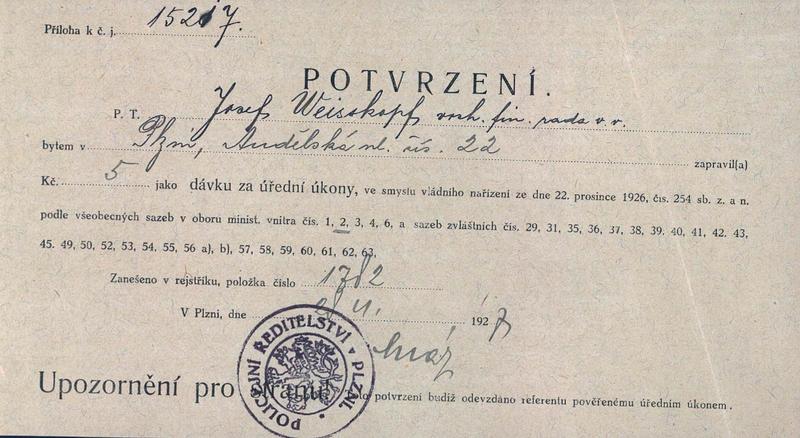 Příloha k č. j. 15217.
POTVRZENÍ.
P. T. Josef Weisskopf vrch. fin. rada v. v.
bytem v Plzni, Andělská ul. čís. 22
zapravil(a)
Kč. 5 jako dávku za úřední úkony, ve smyslu vládního nařízení ze dne 22. prosince 1926, čís. 254 sb. z. a n.
podle všeobecných sazeb v oboru minist. vnitra čís. 1, 2, 3, 4, 6, a sazeb zvláštních čís. 29, 31, 35, 36, 37, 38, 39. 40, 41, 42. 43,
45. 49, 50, 52, 53, 54, 55, 56 a), b), 57, 58, 59, 60, 61, 62, 63,
Zanešeno v rejstříku, položka číslo 1782
V Plzni, dne 4. 1927
POLICEJNÍ ŘEDITELSTVÍ PLZNI.
Upozornění pro stranu! potvrzení budiž odevzdáno referentu pověřenému úředním úkonem.